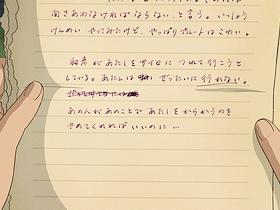 向きあわなければならない、と言う。いっしょう
けんめい やってみたけど、やっぱりプレートはこわい。
和彦があたしをサイロに つれて行こうと
している。あたしは ぜったいに行かない。
あの人が あのことで あたしを からかうのを
やめてくれれば いいのに…